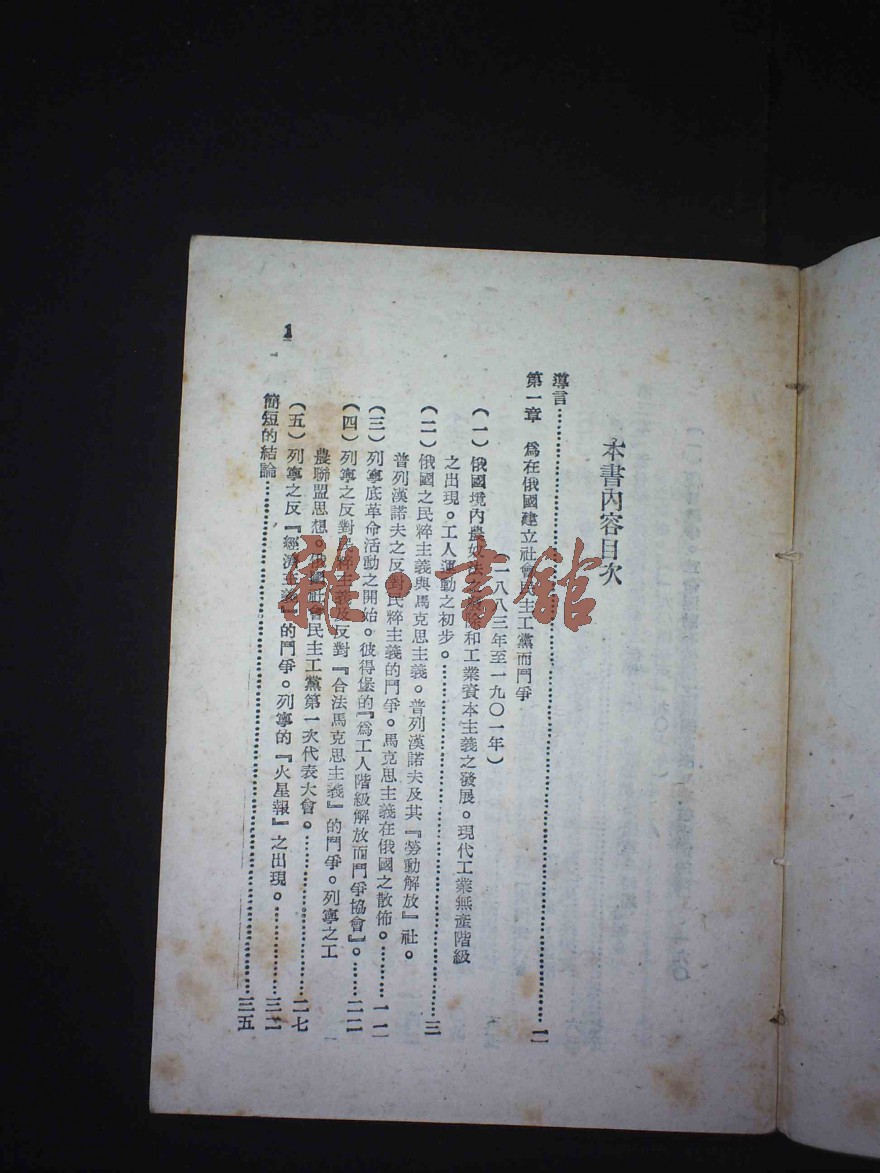 本書內容目次
導言……一
第一章　為在俄國建立社會民主工黨而鬥爭
(一八八三年至一九〇一年)
(一)俄國境內農奴法之廢除和工業資本主義之發展。現代工業無產階級
之出現。工人運動之初步。……三
(二)俄國之民粹主義與馬克思主義。普列漢諾夫及其『勞動解放』社。
普列漢諾夫之反對民粹主義的鬥爭。馬克思主義在俄國之散佈。……一一
(三)列寧底革命活動之開始。彼得堡的『為工人階級解放而鬥爭協會』。……二二
(四)列寧之反對民粹主義及反對『合法馬克思主義』的鬥爭。列寧之工
農聯盟思想。俄國社會民主工黨第一次代表大會。……二七
(五)列寧之反『經濟主義』的鬥爭。列寧的『火星報』之出現。……三二
簡短的結論……三五
1
雜·書館